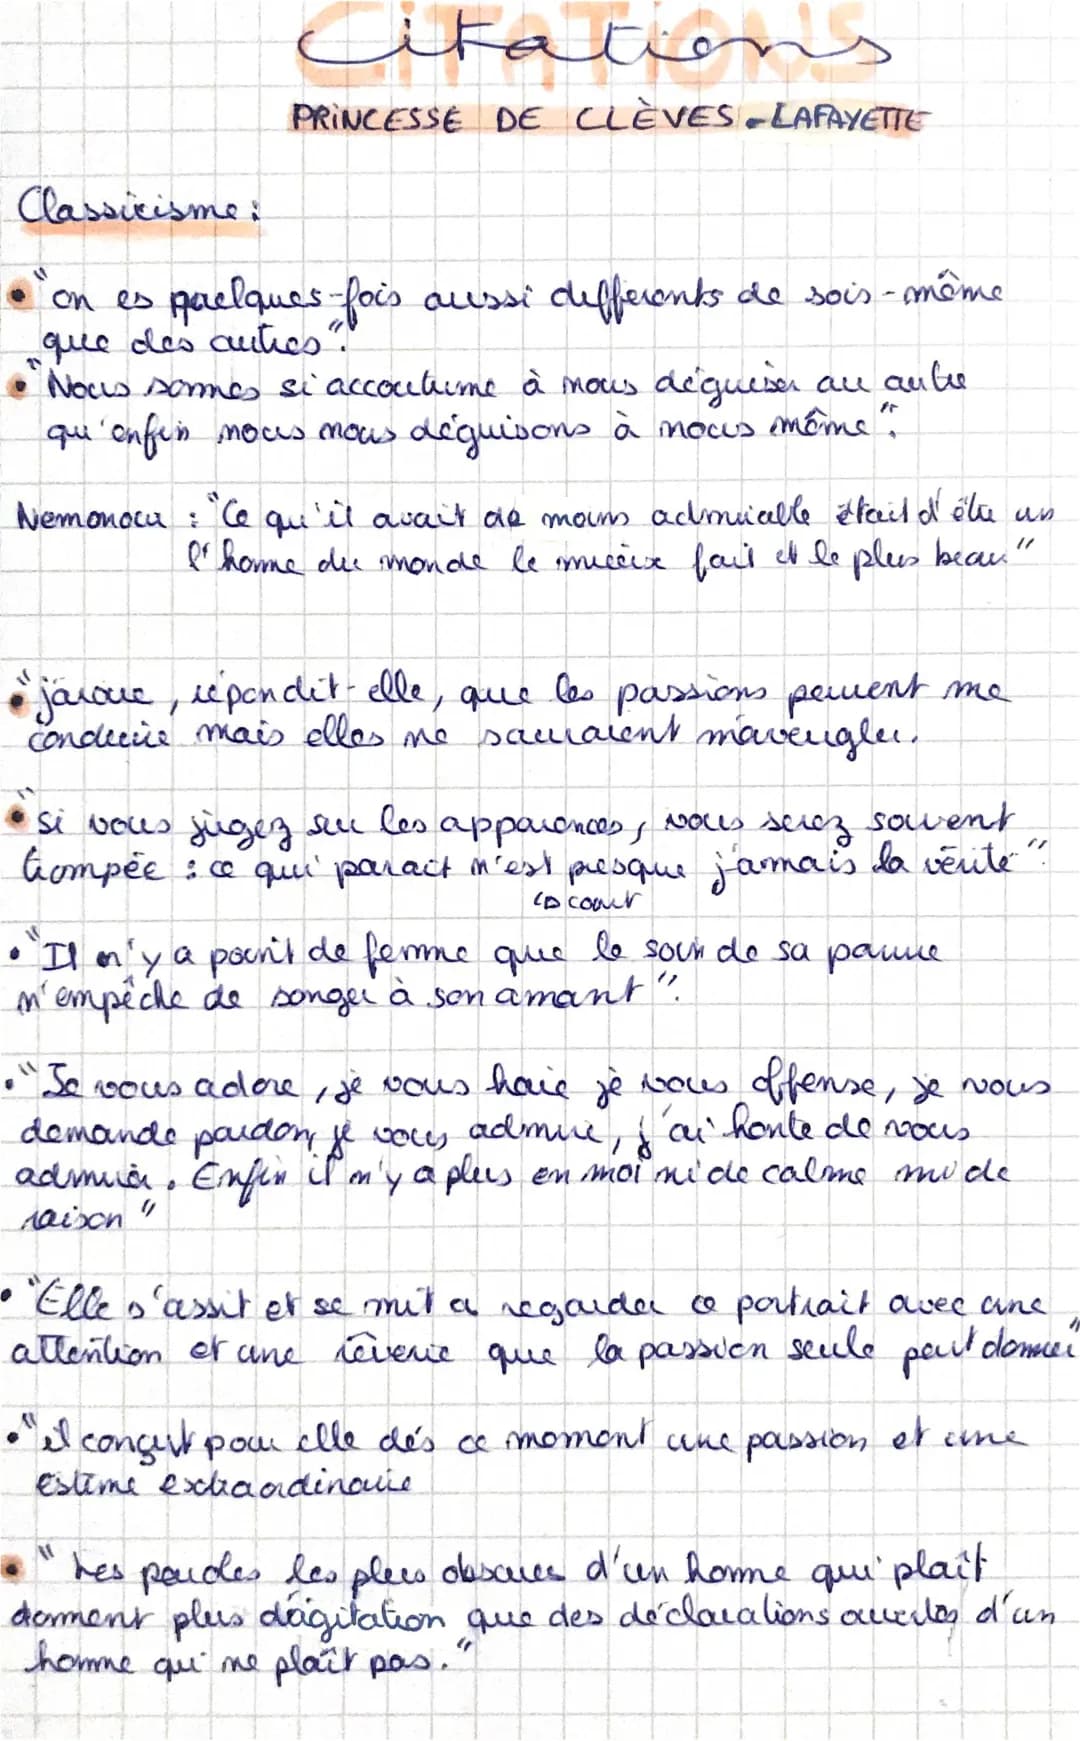 Citations
PRINCESSE DE CLÈVES - LAFAYETTE
Classicisme :
• "on es quelques-fois aussi differents de sois-même
que des autres".
• "Nous sommes si accoutume à nous déguiser au autre
qu'enfin nous nous déguisons à nous même".
: "Ce qu'il avait de moins admirable était d'être un
l'homme du monde le mieux fait et le plus beau"
• "j'avoue, répondit-elle, que les passions peuvent me
conduire mais elles ne sauraient m'aveugler.
• "si vous jugez sur les apparences, vous serez souvent
trompée : ce qui parait n'est presque jamais la vérité".
↳ court
• "Il n'y a point de femme que le soin de sa parure
n'empêche de songer à son amant".
• "Je vous adore, je vous haie je vous offense, je vous
demande pardon, je vous admire, j'ai honte de vous
admirer. Enfin il n'y a plus en moi ni de calme ni de
raison"
• "Elle s'assit et se mit a regarder ce portrait avec une
attention et une rêverie que la passion seule peut donner"
• "il conçut pour elle dés ce moment une passion et une
estime extraordinaire
• "Les paroles les plus obscures d'un homme qui plaît
donnent plus d'agitation que des déclarations ouvertes d'un
homme qui ne plaît pas."